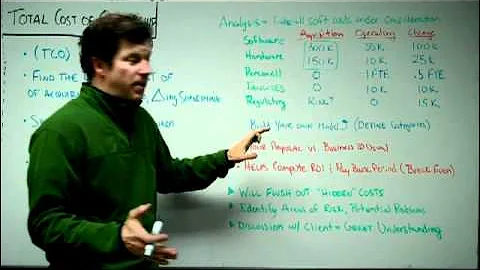 TOTAL COST OF
• (TCO)
• FIND THE
OF ACQUI
Analysis = soft costs under consideration
Acquisition Operating Change
Software 300K 50K 100K
Hardware 150K 10K 25K
Personell 0 1 FTE .5 FTE
Facilities 0 10K 10K
Regulatory Risk 0 15K
Build Your Own Model (Define Categories)
Your Proposal vs. Business As Usual
• Helps Compute ROI & Pay Back Period ("Break Even)
• Will Flush Out "Hidden" Costs
• Identify Areas of Risk, Potential Problems
• Discussion w/ Client = Great Understanding